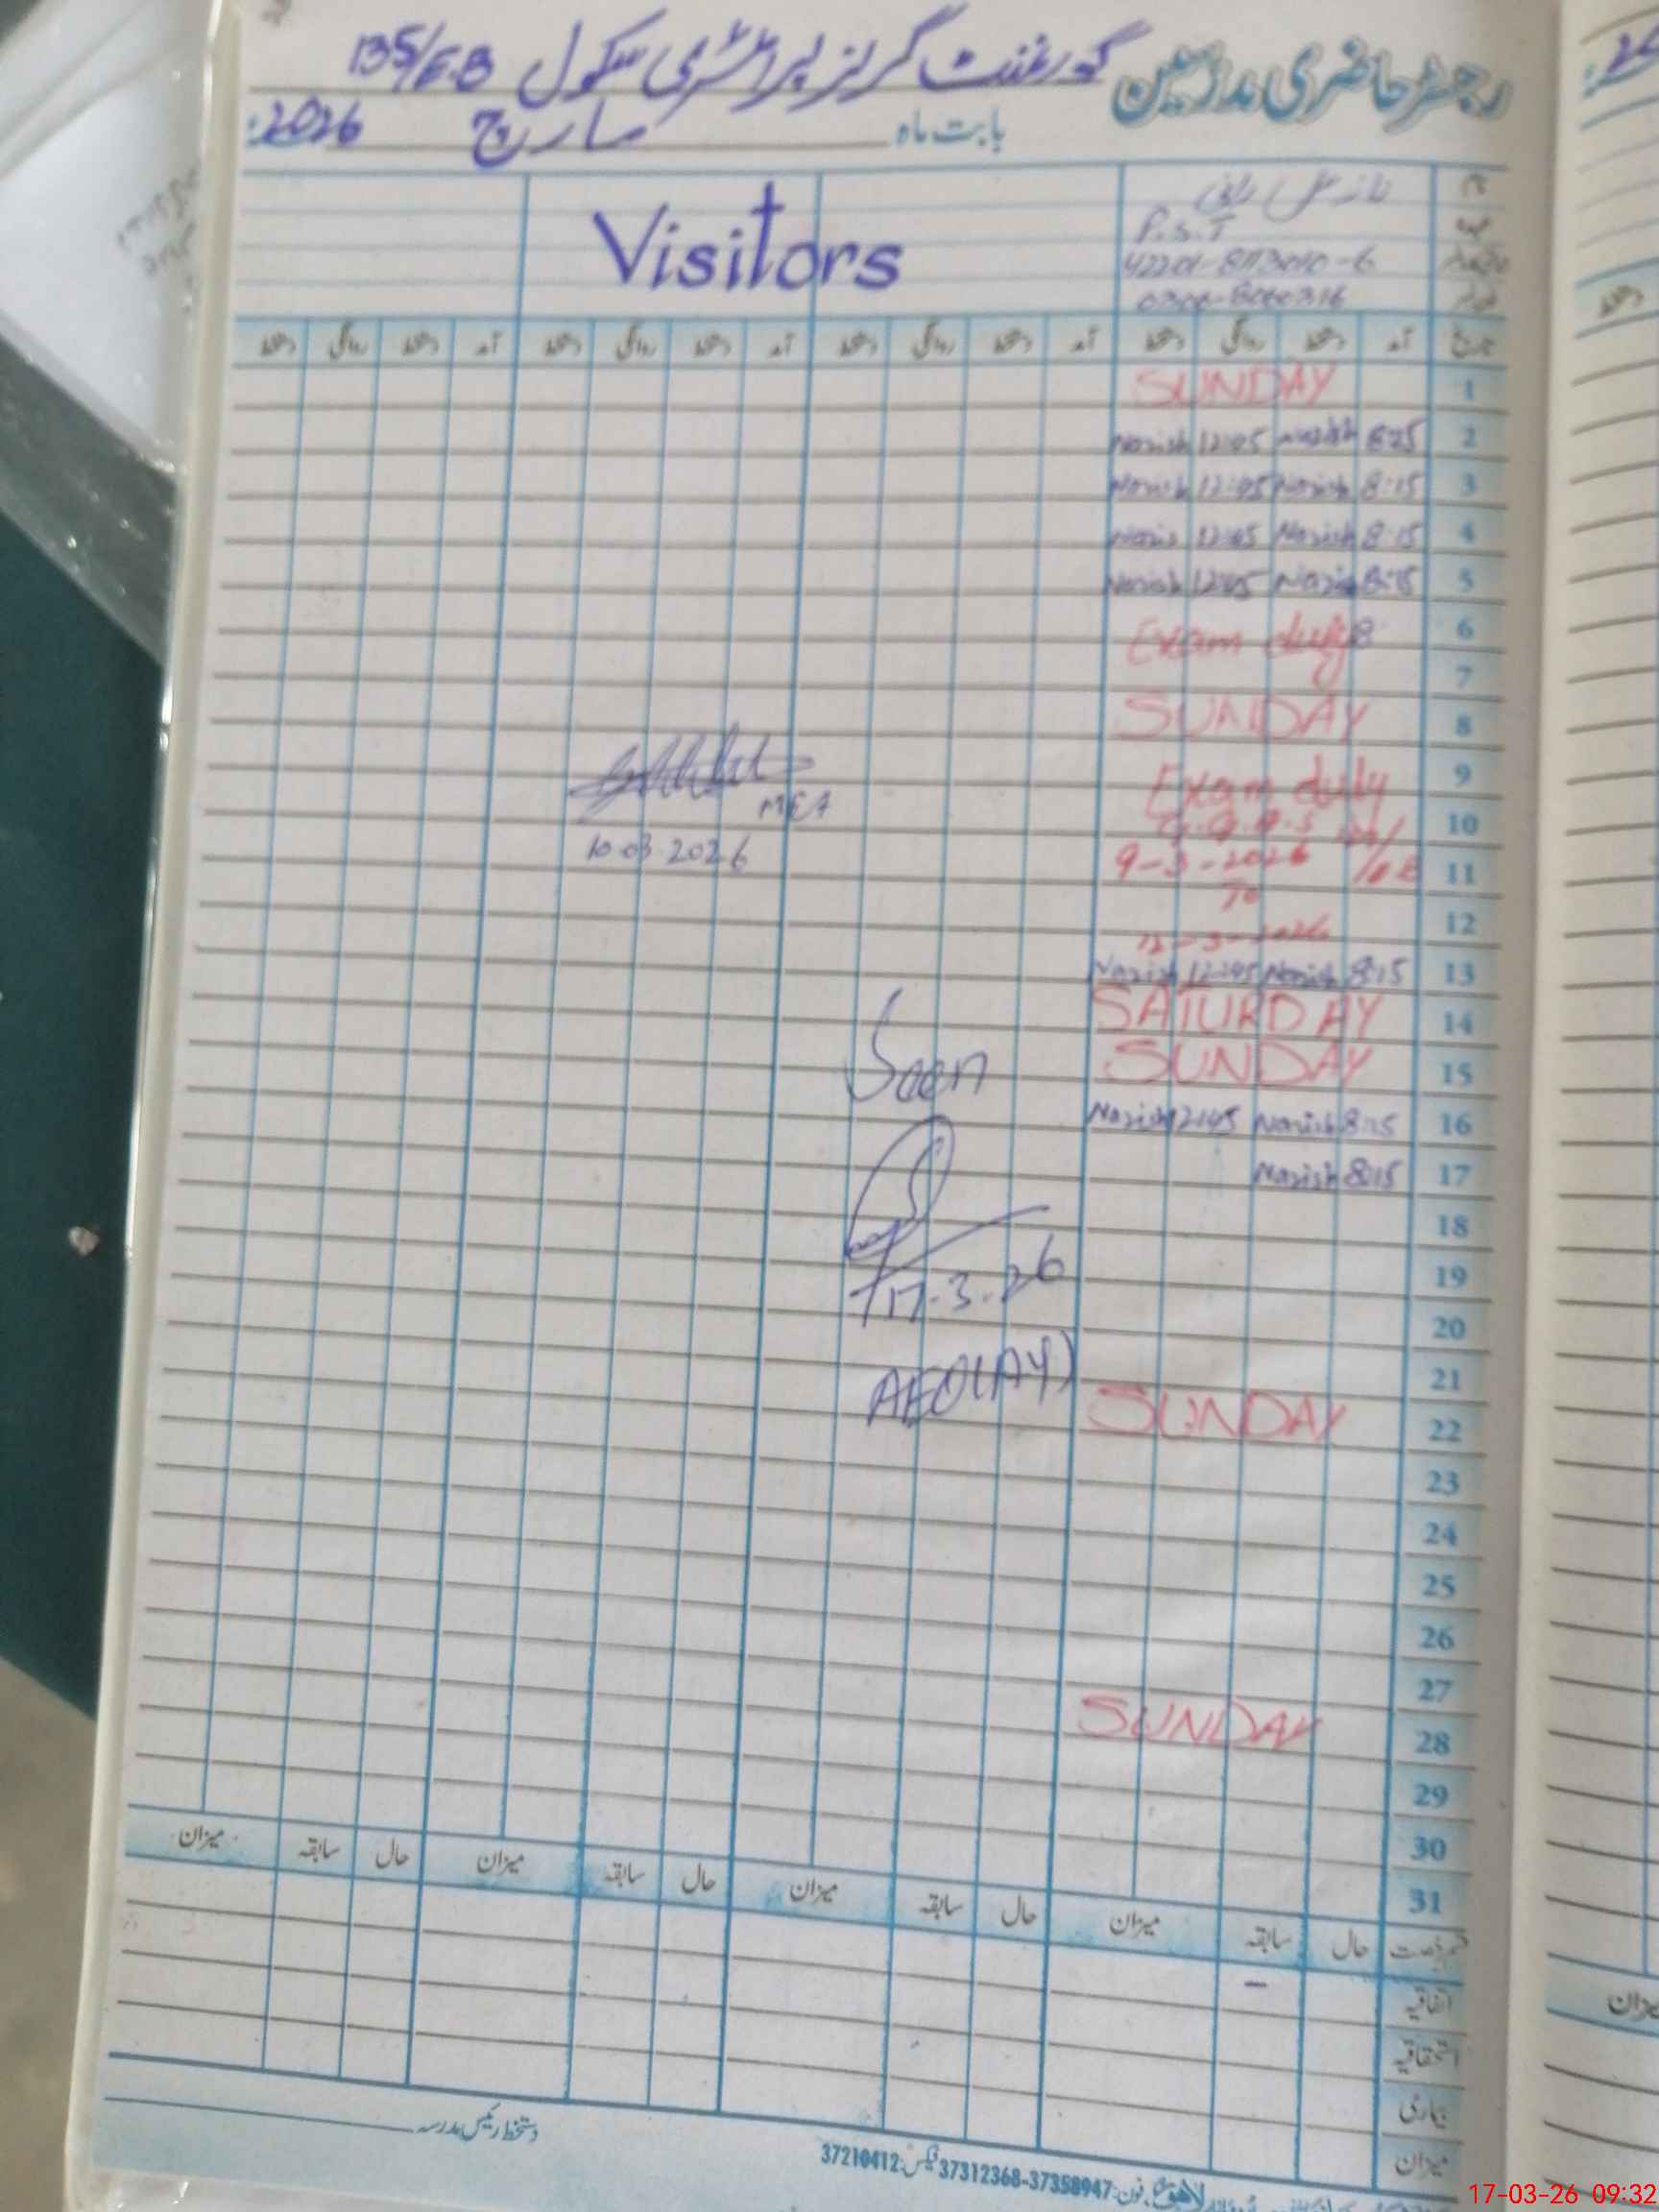 رجسٹر حاضری مدرسین گورنمنٹ گرلز پرائمری سکول 135/E.B
بابت ماہ مارچ 2026
Visitors
P.S.T
تاریخ آمد دستخط روانگی دستخط آمد دستخط روانگی دستخط آمد دستخط روانگی دستخط آمد دستخط روانگی دستخط
1 SUNDAY
2 Nazish 12:45 Nazish 8:15
3 Nazish 12:45 Nazish 8:15
4 Nazish 12:45 Nazish 8:15
5 Nazish 12:45 Nazish 8:15
6 Exam duty 8
7
8 SUNDAY
9 Exam duty
MEA
10
10-03-2026
11 9-3-2026
To
12 12-3-2026
13 Nazish 12:45 Nazish 8:15
14 SATURDAY
Seen
15 SUNDAY
16 Nazish 12:45 Nazish 8:15
17 Nazish 8:15
18
19
17.3.26
20
21
AEO(AY)
22 SUNDAY
23
24
25
26
27
28 SUNDAY
29
30
31
حال سابقہ میزان حال سابقہ میزان حال سابقہ میزان حال سابقہ میزان
اتفاقیہ
استحقاقیہ
بیماری
میزان
دستخط رئیس مدرسہ
لاہور فون: 37312368-37358947 فیکس: 37210412
17-03-26 09:32